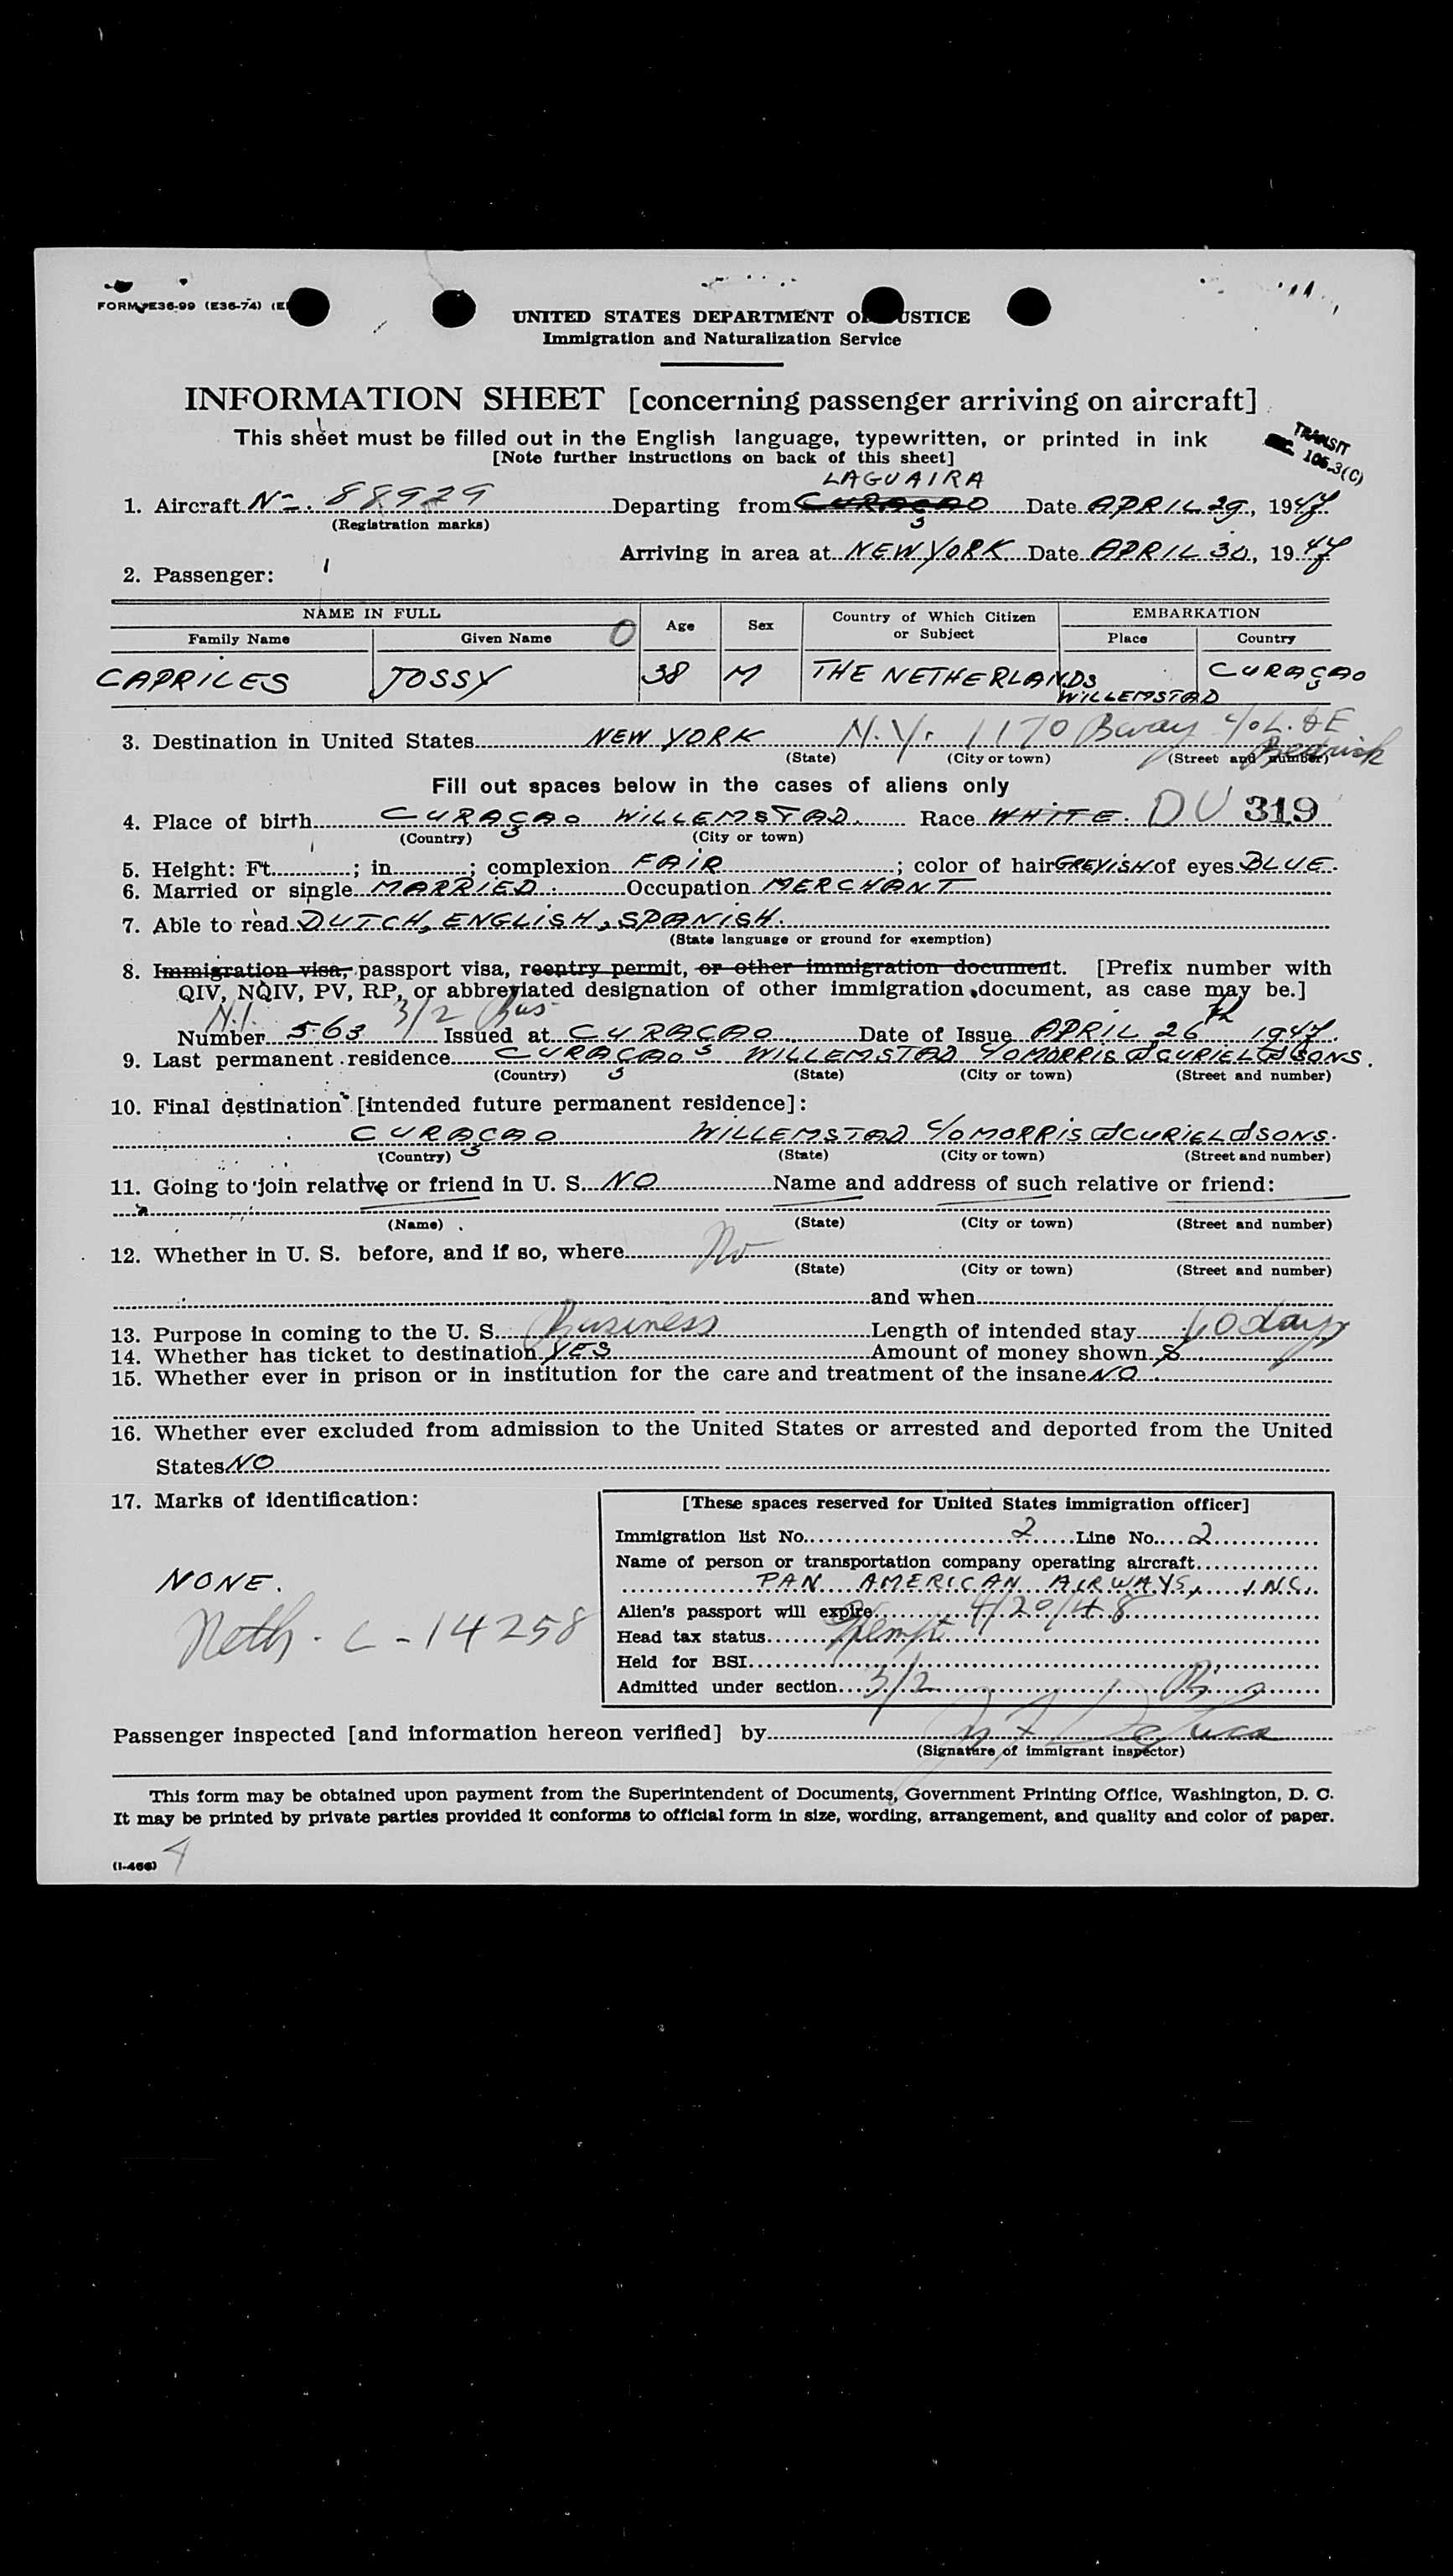 FORM E36-99 (E36-74)
UNITED STATES DEPARTMENT OF JUSTICE
Immigration and Naturalization Service
INFORMATION SHEET [concerning passenger arriving on aircraft]
This sheet must be filled out in the English language, typewritten, or printed in ink
[Note further instructions on back of this sheet]
TRANSIT
106.3(C)
LAGUAIRA
1. Aircraft No. 88929 Departing from CURAÇAO Date APRIL 29, 1947
(Registration marks)
Arriving in area at NEW YORK Date APRIL 30, 1947
2. Passenger:
NAME IN FULL Age Sex Country of Which Citizen or Subject EMBARKATION
Family Name Given Name Place Country
CAPRILES JOSSY 38 M THE NETHERLANDS WILLEMSTAD CURAÇAO
3. Destination in United States NEW YORK N.Y. 1170 Bway c/o L. & E
(State) (City or town) (Street and number)
Fill out spaces below in the cases of aliens only
4. Place of birth CURAÇAO WILLEMSTAD. Race WHITE. DU 319
(Country) (City or town)
5. Height: Ft. ; in. ; complexion FAIR ; color of hair GREYISH of eyes BLUE.
6. Married or single MARRIED. Occupation MERCHANT
7. Able to read DUTCH, ENGLISH, SPANISH.
(State language or ground for exemption)
8. Immigration visa, passport visa, reentry permit, or other immigration document. [Prefix number with
QIV, NQIV, PV, RP, or abbreviated designation of other immigration document, as case may be.]
N.I. 3/2 Bus
Number 563 Issued at CURACAO Date of Issue APRIL 26th 1947.
9. Last permanent residence CURAÇAO WILLEMSTAD c/o MORRIS & CURIEL & SONS.
(Country) (State) (City or town) (Street and number)
10. Final destination [intended future permanent residence]:
CURAÇAO WILLEMSTAD c/o MORRIS & CURIEL & SONS.
(Country) (State) (City or town) (Street and number)
11. Going to join relative or friend in U. S. NO Name and address of such relative or friend:
(Name) (State) (City or town) (Street and number)
12. Whether in U. S. before, and if so, where No
(State) (City or town) (Street and number)
and when
13. Purpose in coming to the U. S. Business Length of intended stay 60 days
14. Whether has ticket to destination YES Amount of money shown $
15. Whether ever in prison or in institution for the care and treatment of the insane NO.
16. Whether ever excluded from admission to the United States or arrested and deported from the United
States NO
17. Marks of identification:
NONE.
Neth. C-14258
[These spaces reserved for United States immigration officer]
Immigration list No. 2 Line No. 2
Name of person or transportation company operating aircraft
PAN AMERICAN AIRWAYS, INC.
Alien's passport will expire 4/20/48
Head tax status Exempt
Held for BSI
Admitted under section 3/2
Passenger inspected [and information hereon verified] by
(Signature of immigrant inspector)
This form may be obtained upon payment from the Superintendent of Documents, Government Printing Office, Washington, D. C.
It may be printed by private parties provided it conforms to official form in size, wording, arrangement, and quality and color of paper.
(I-466) 4